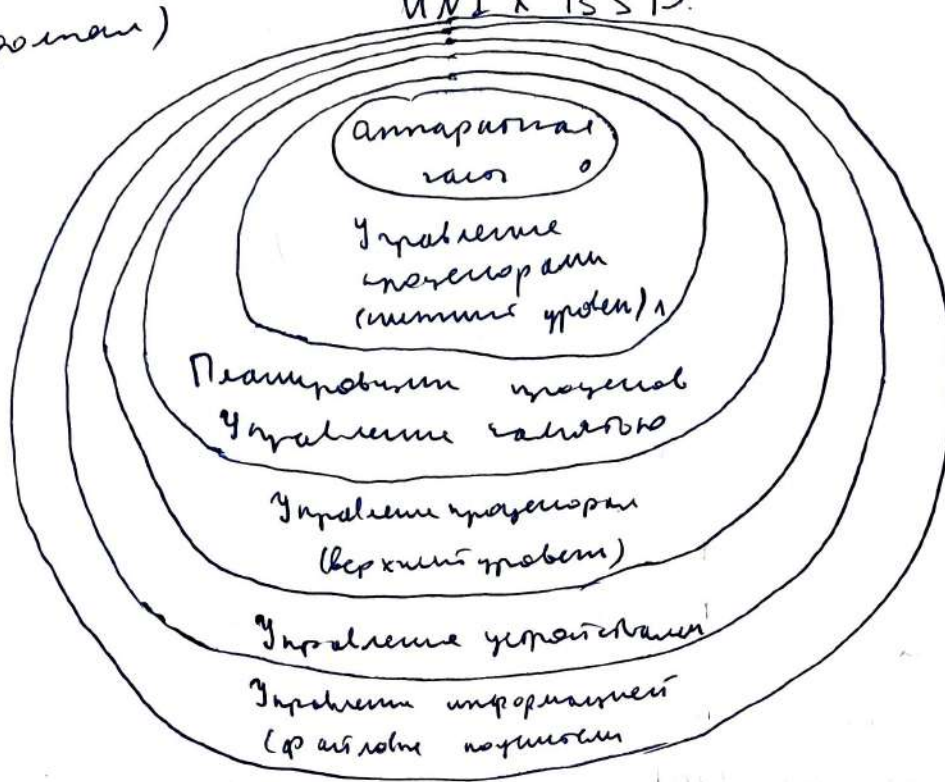 UNIX BSD.
аппаратная
часть
Управление
процессорами
(нижний уровень)
Планировщик процессов
Управление памятью
Управление процессорами
(верхний уровень)
Управление устройствами
Управление информацией
(файловые